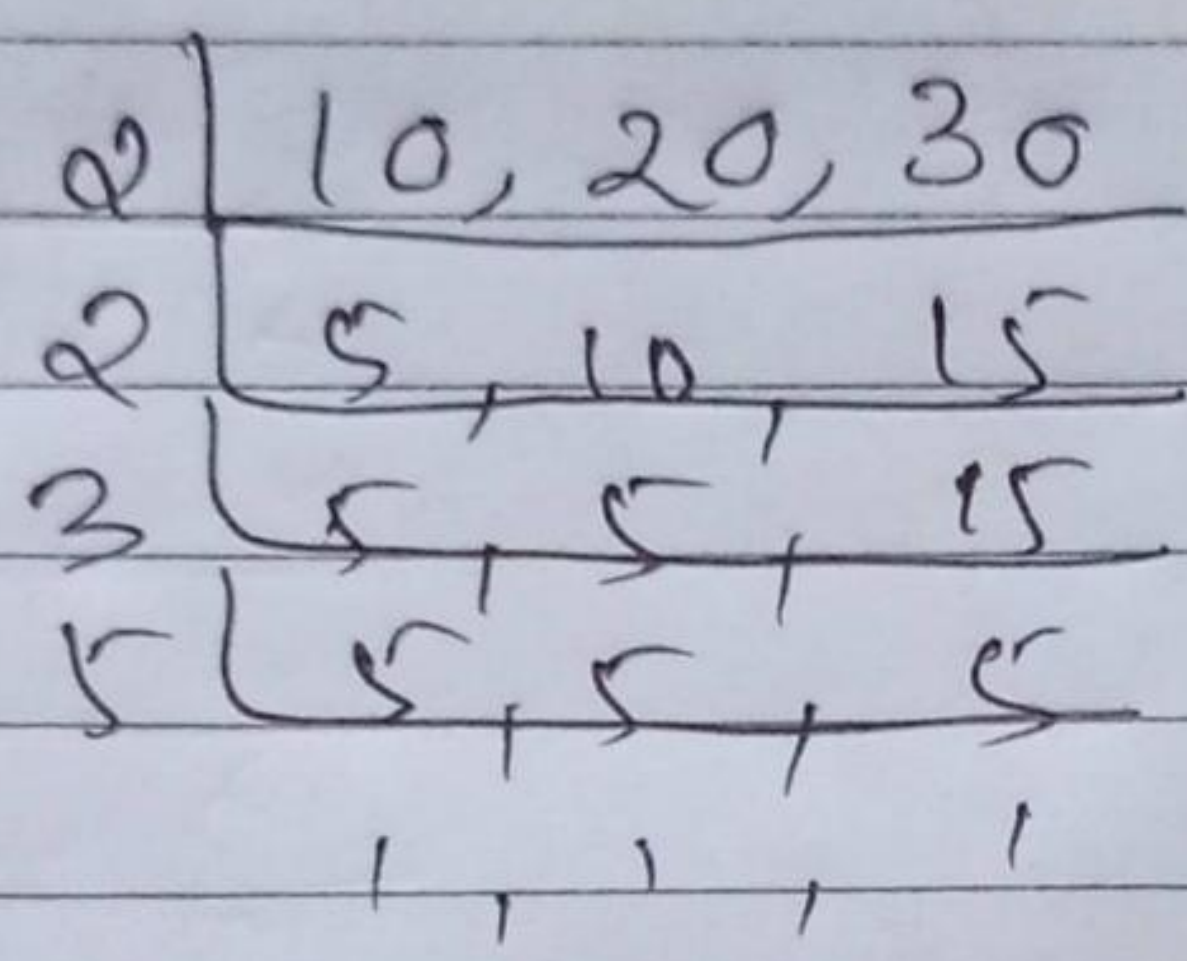 2 | 10, 20, 30
2 | 5, 10, 15
3 | 5, 5, 15
5 | 5, 5, 5
1, 1, 1